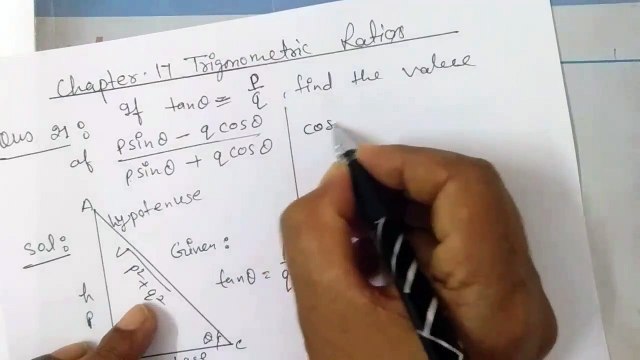 Chapter. 17 Trigonometric Ratios
Ques 21: If tanθ = p/q, find the value
of psinθ - qcosθ / psinθ + qcosθ
cos
A
hypotenuse
Sol:
Given:
tanθ =
h
p
θ
C